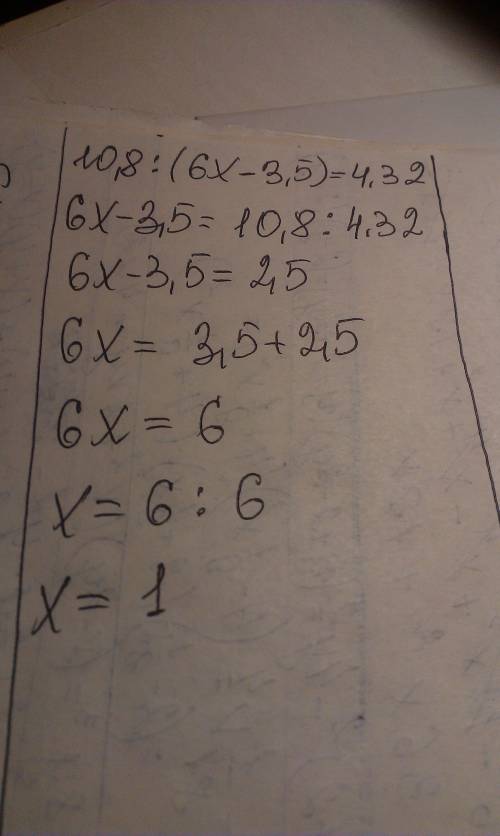 10,8:(6x-3,5)=4.32
6x-3,5= 10,8:4.32
6x-3,5= 2,5
6x= 3,5+2,5
6x= 6
x= 6:6
x= 1